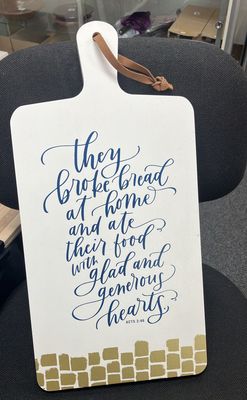 they
broke bread
at home
and ate
their food
with glad and
generous
hearts
ACTS 2:46